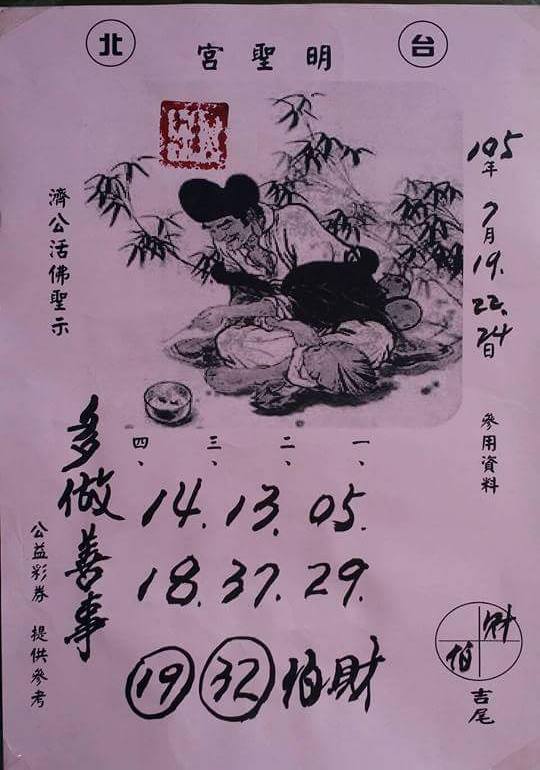 台北
明聖宮
105年7月19.22.24日
參用資料
濟公活佛聖示
一、二、三、四、
14. 13. 05.
18. 37. 29.
19 32 伯財
多做善事
公益彩券 提供參考
財 伯
吉尾